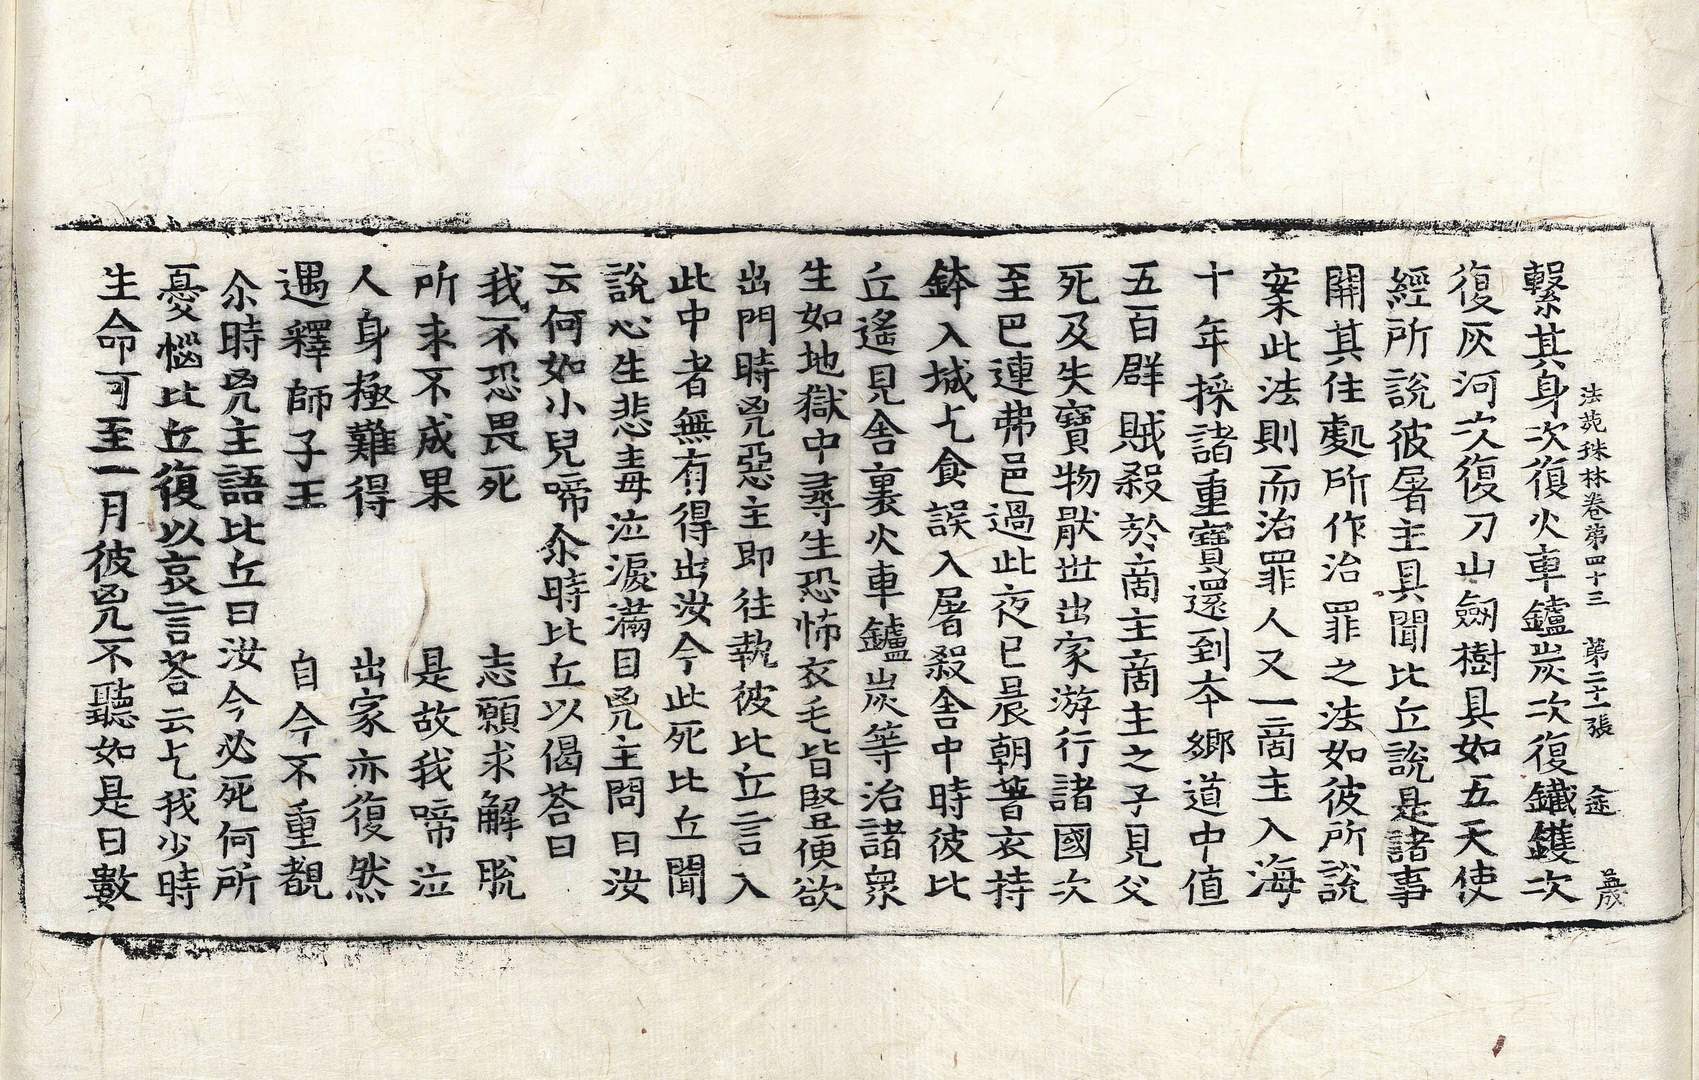 法苑珠林卷第四十三 第二十一張 㒰 歲
繫其身次復火車鑪炭次復鐵鑊次
復灰河次復刀山劒樹具如五天使
經所說彼屠主具聞比丘說是諸事
開其住處所作治罪之法如彼所說
案此法則而治罪人又一啇主入海
十年採諸重寶還到本鄉道中值
五百群賊殺於啇主啇主之子見父
死及失寶物厭世出家游行諸國次
至巴連弗邑過此夜已晨朝著衣持
鉢入城乞食誤入屠殺舍中時彼比
丘遙見舍裏火車鑪炭等治諸衆
生如地獄中尋生恐怖衣毛皆竪便欲
出門時兇惡主即往執彼比丘言入
此中者無有得出汝今此死比丘聞
說心生悲毒泣淚滿目兇主問曰汝
云何如小兒啼尒時比丘以偈荅曰
我不恐畏死 志願求解脫
所求不成果 是故我啼泣
人身極難得 出家亦復然
遇釋師子王 自今不重覩
尒時兇主語比丘曰汝今必死何所
憂惱比丘復以哀言荅云乞我少時
生命可至一月彼兇不聽如是日數